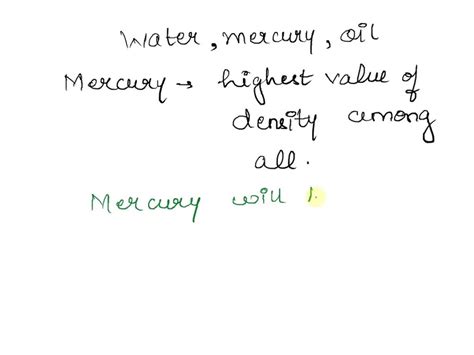 Water, mercury, oil
Mercury → highest value of
density among
all.
Mercury will